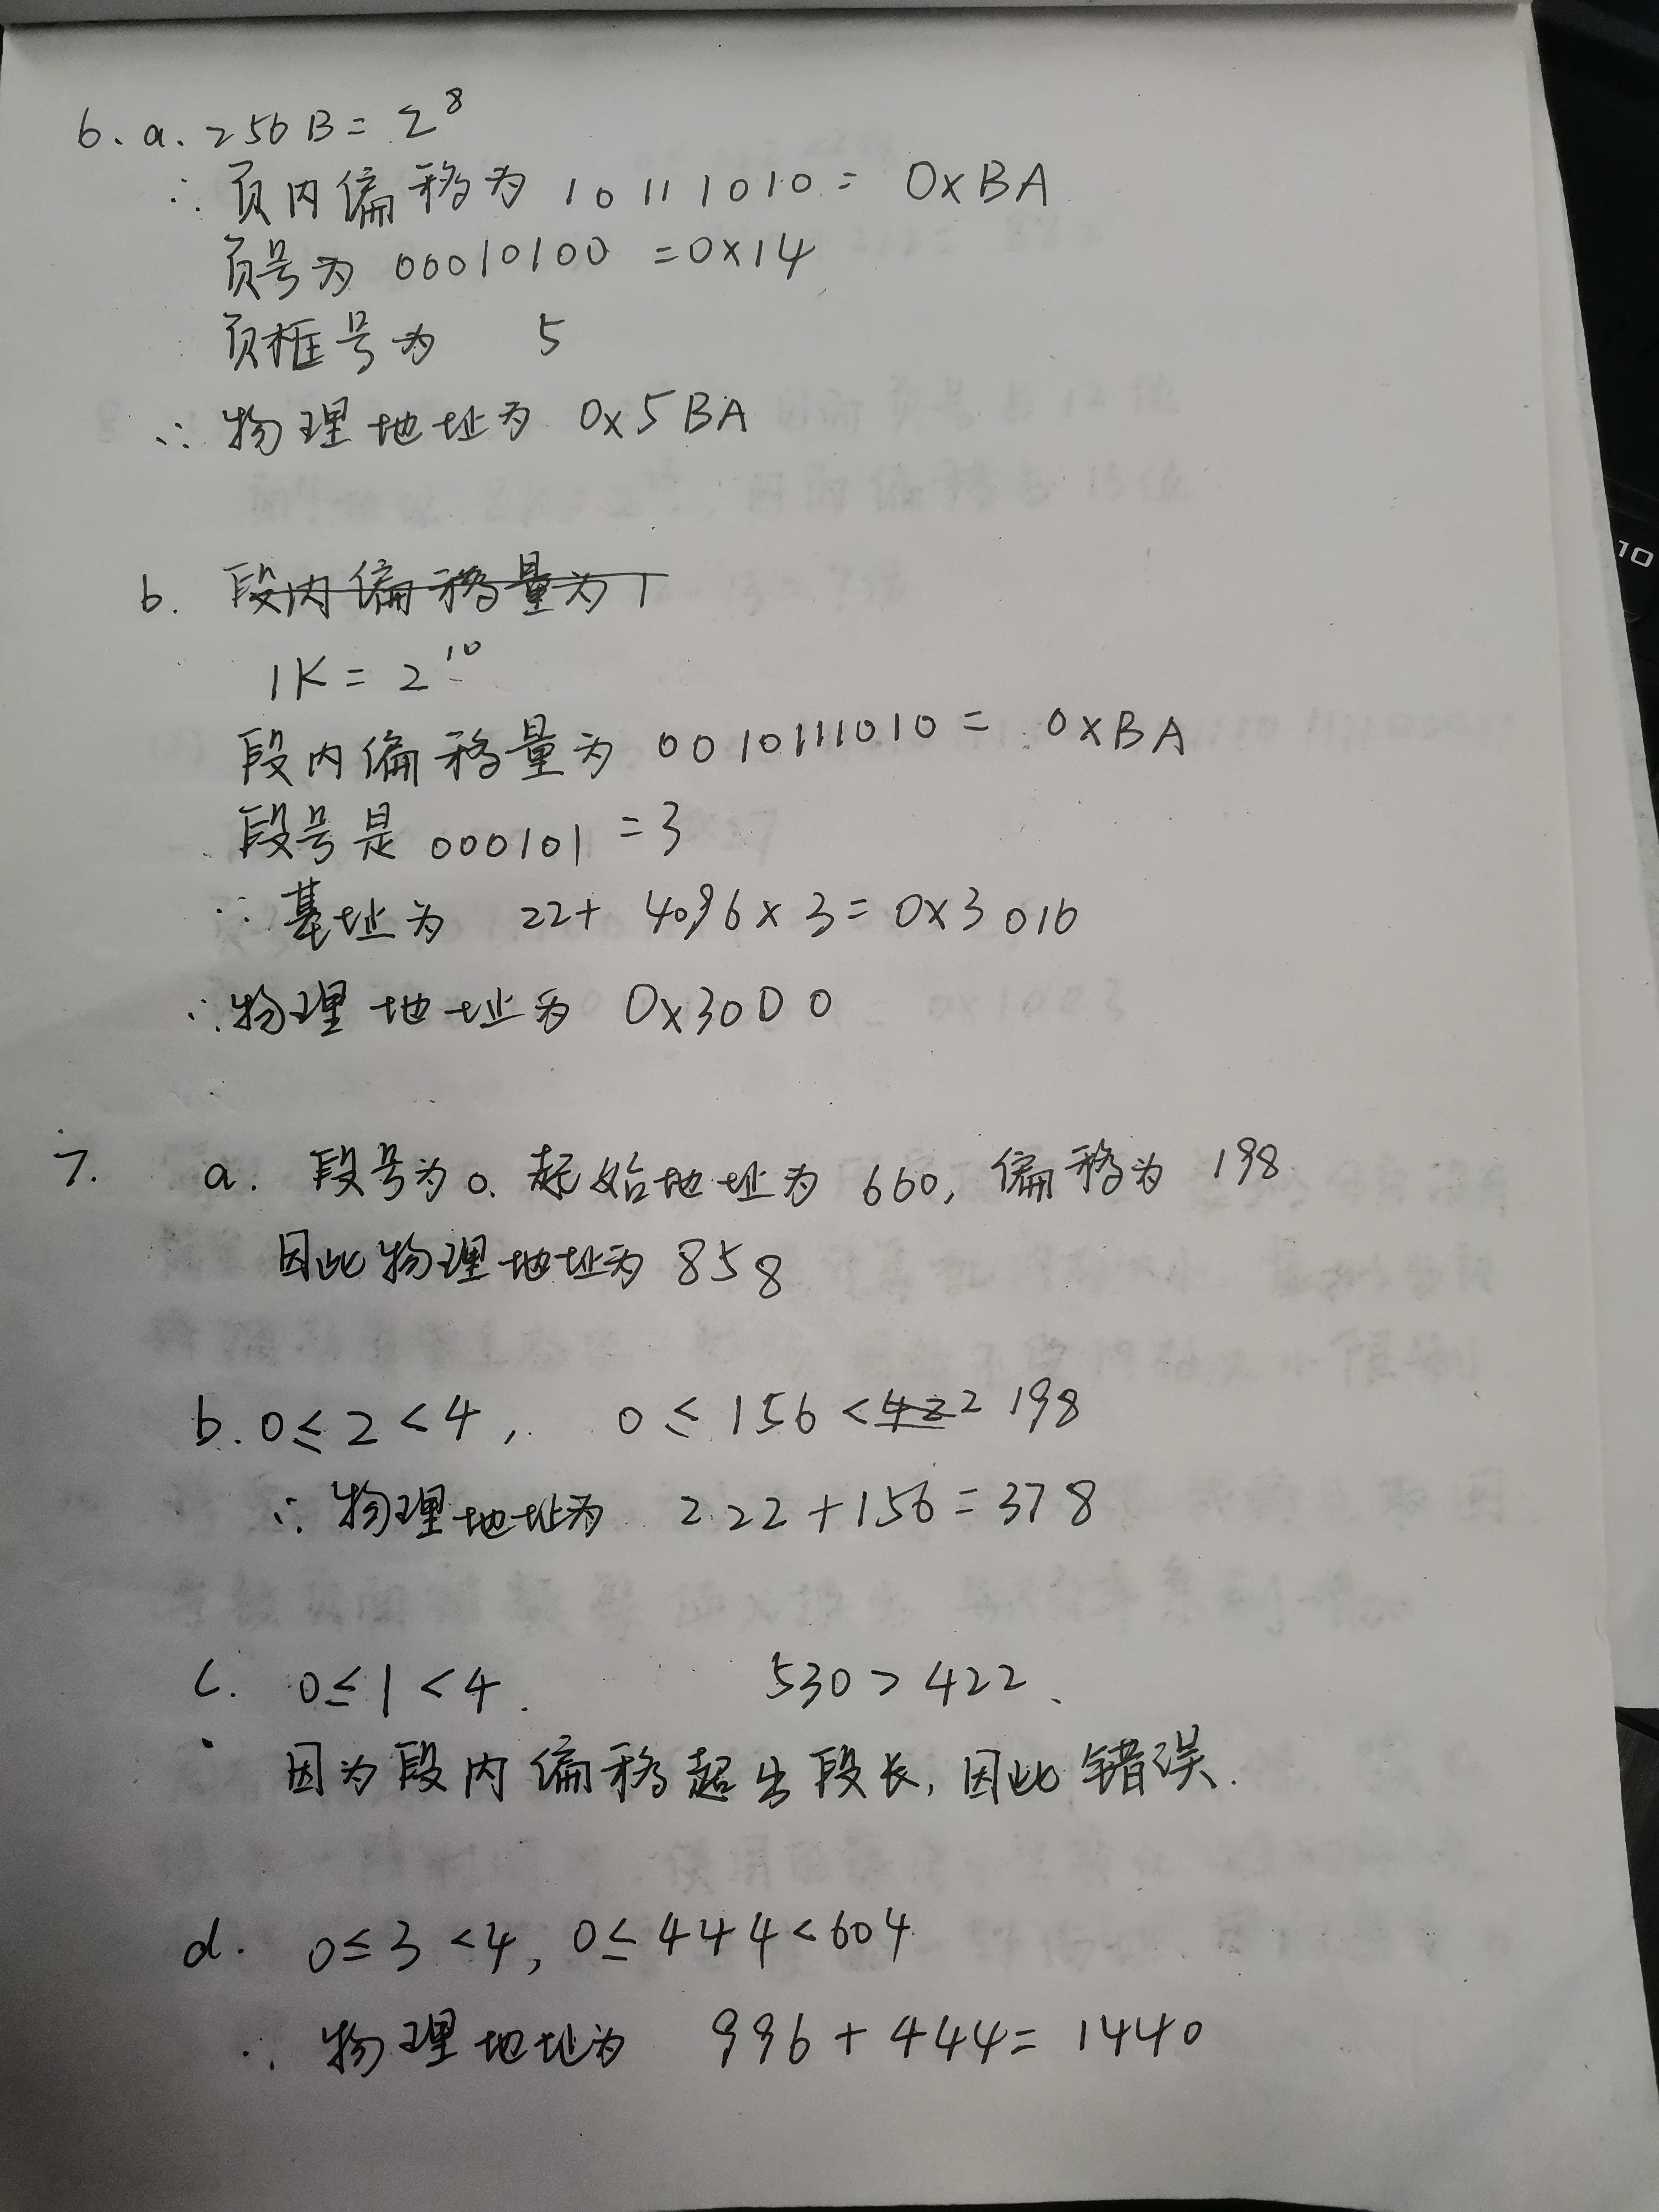 6. a. 256B = 2^8
∴ 页内偏移为 10111010 = 0xBA
页号为 00010100 = 0x14
页框号为 5
∴ 物理地址为 0x5BA
b. 段内偏移量为1
1K = 2^10
段内偏移量为 0010111010 = 0xBA
段号是 000101 = 3
∴ 基址为 22 + 4096 x 3 = 0x3016
∴ 物理地址为 0x30D0
7. a. 段号为0. 起始地址为 660, 偏移为 198
因此物理地址为 858
b. 0 ≤ 2 < 4, 0 ≤ 156 < 422 198
∴ 物理地址为 222 + 156 = 378
c. 0 ≤ 1 < 4. 530 > 422、
因为段内偏移超出段长, 因此错误.
d. 0 ≤ 3 < 4, 0 ≤ 444 < 604
∴ 物理地址为 996 + 444 = 1440
10